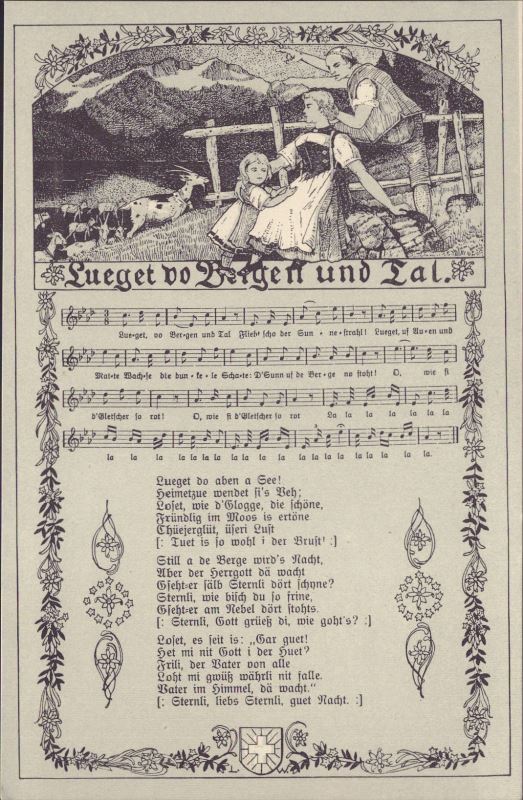 Lueget vo Bergen und Tal.
Lue-get, vo Ber-gen und Tal Flieh-scho der Sun-ne-strahl! Lueget, uf Au-en und
Mat-te Wach-se die dun-ke-le Scha-te: D'Sunn uf de Ber-ge no stoht! O, wie si
d'Gletscher so rot! O, wie si d'Gletscher so rot La la la la la la
la la la la la la la la la la la la la la la.
Lueget do aben a See!
Heimetzue wendet si's Veh;
Loset, wie d'Glogge, die schöne,
Fründlig im Moos is ertöne
Chüejerglüt, üseri Lust
[: Tuet is so wohl i der Brust! :]
Still a de Berge wird's Nacht,
Aber der Herrgott dä wacht
Gseht-er sälb Sternli dört schyne?
Sternli, wie bisch du so frine,
Gseht-er am Nebel dört stohts.
[: Sternli, Gott grüeß di, wie goht's? :]
Loset, es seit is: „Gar guet!
Het mi nit Gott i der Huet?
Frili, der Vater von alle
Loht mi gwüß währli nit falle.
Vater im Himmel, dä wacht."
[: Sternli, liebs Sternli, guet Nacht. :]
L W